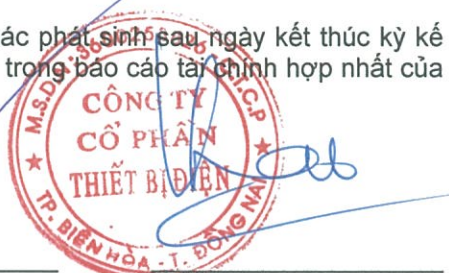 ác phát sinh sau ngày kết thúc kỳ kế
trong báo cáo tài chính hợp nhất của
CÔNG TY
CỔ PHẦN
THIẾT BỊ ĐIỆN
TP. BIÊN HÒA - T. ĐỒNG NAI